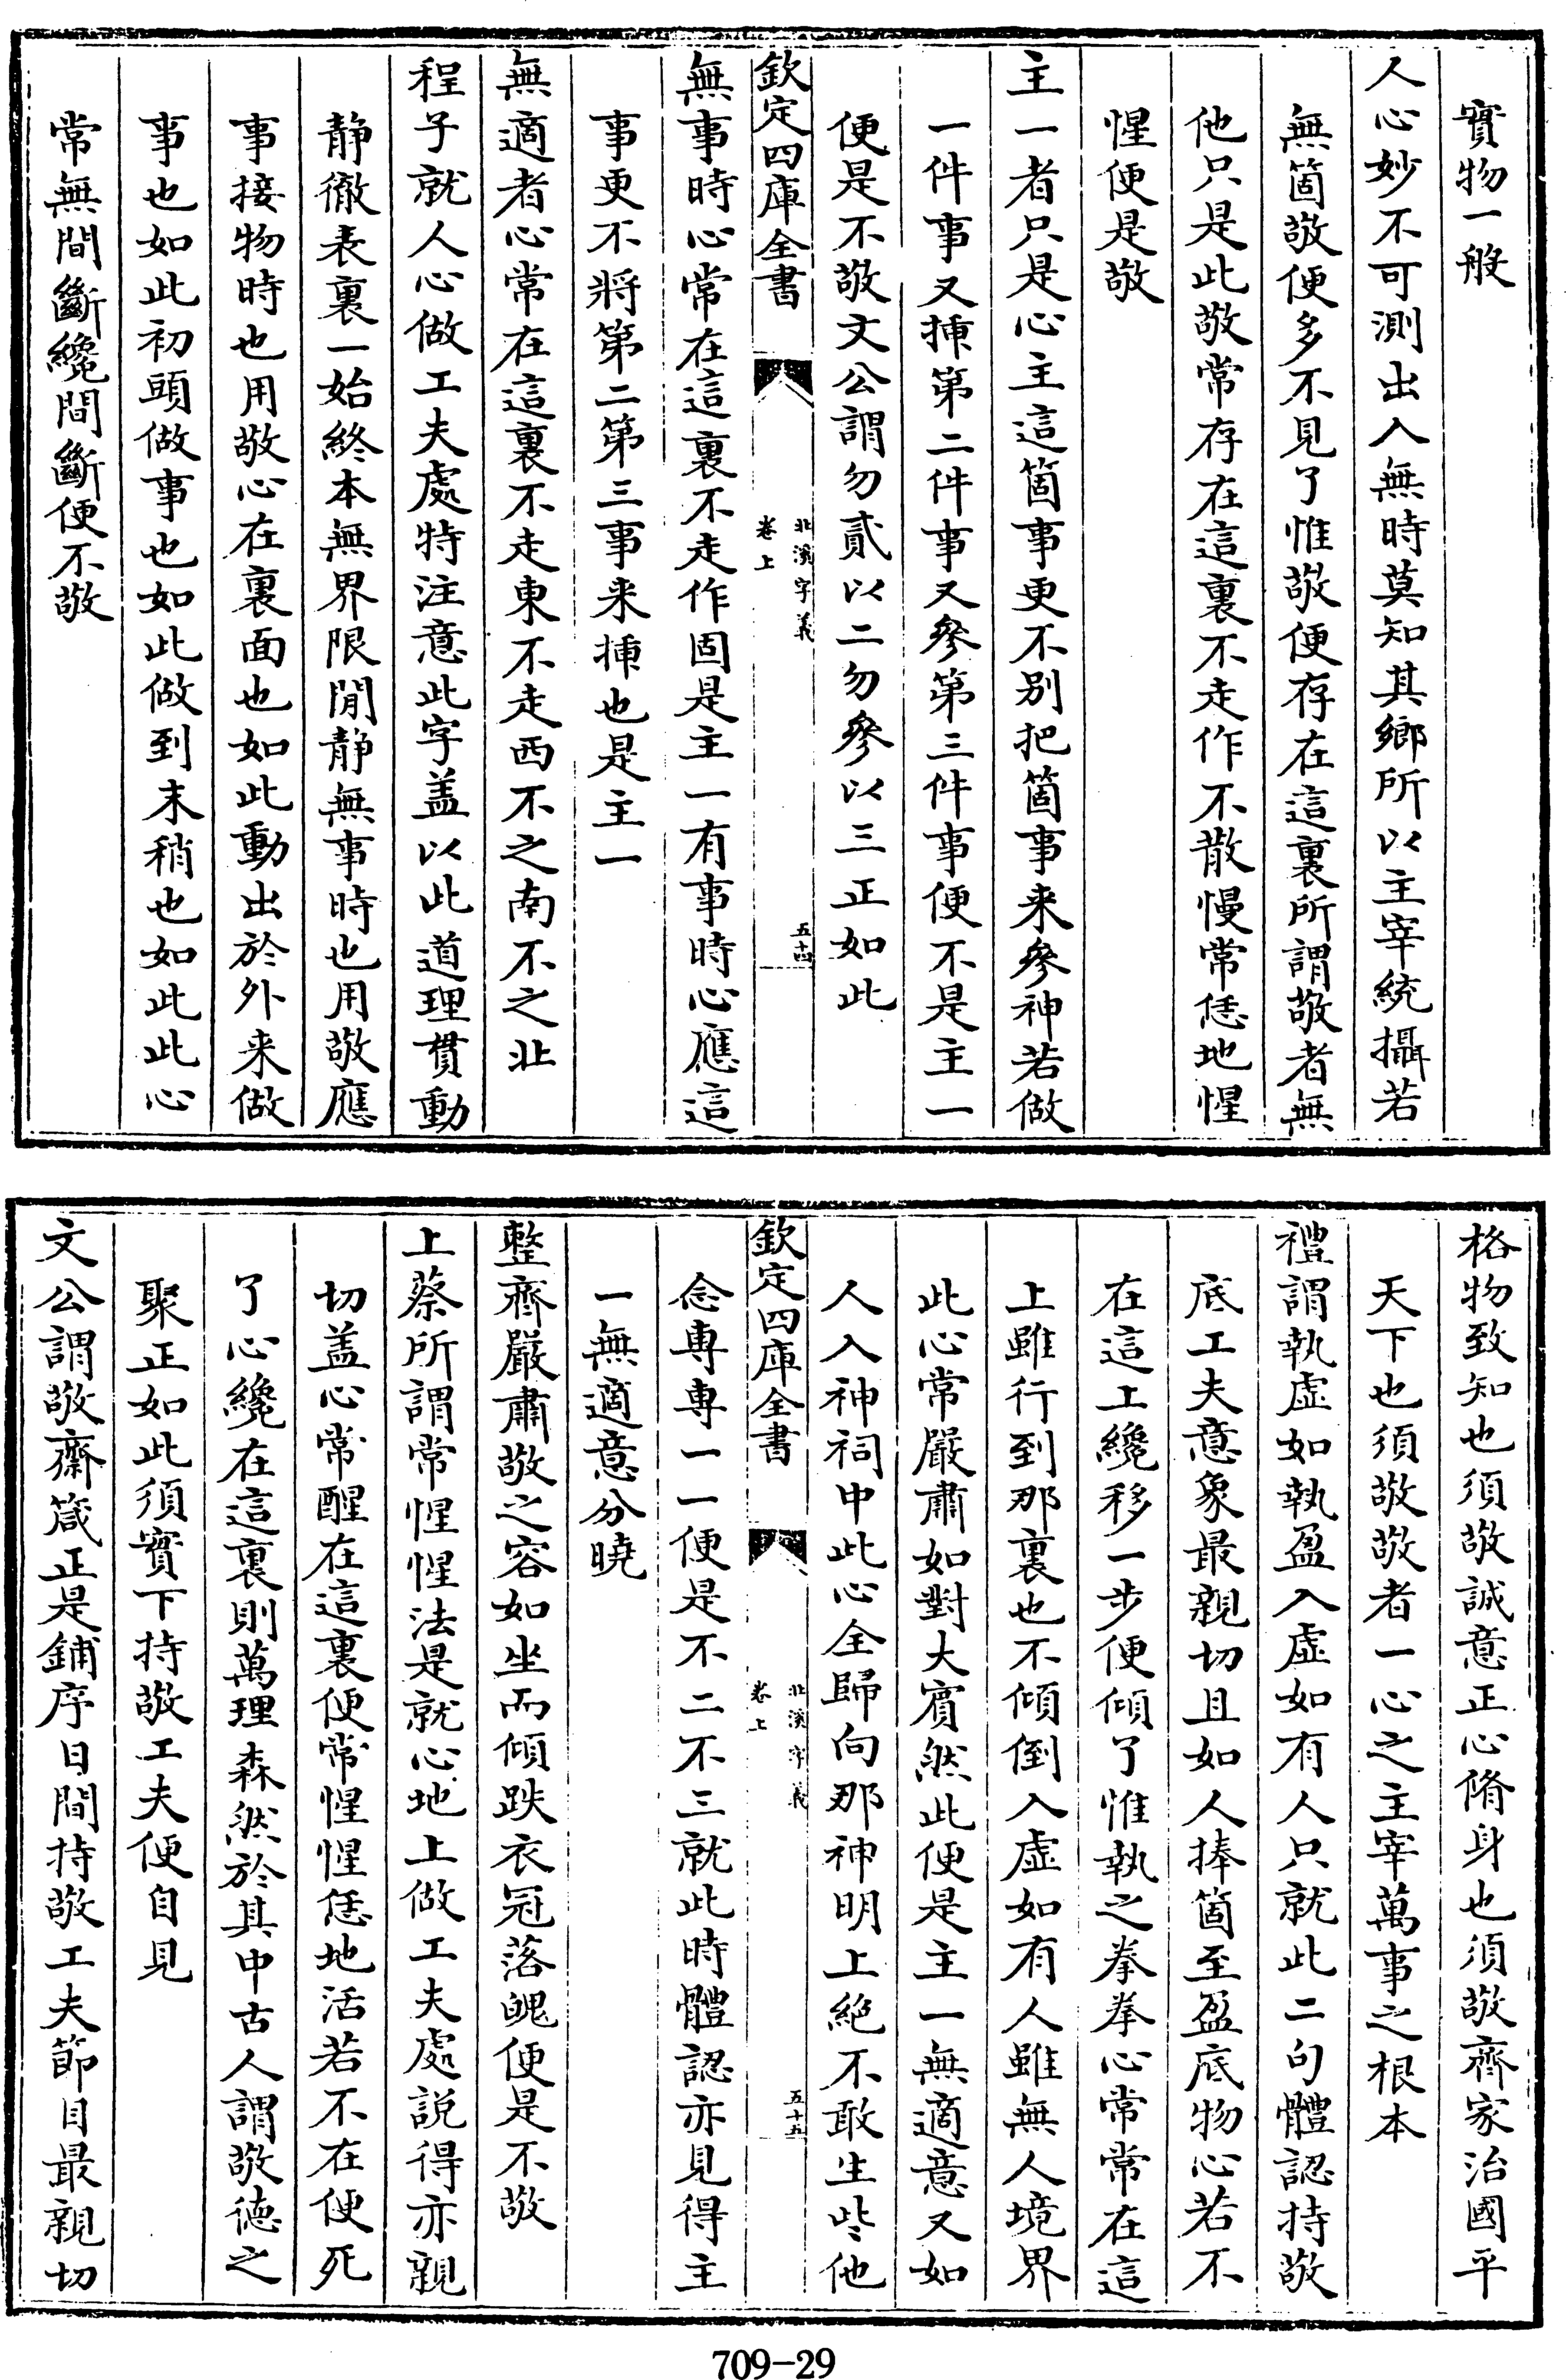 實物一般
人心妙不可測出入無時莫知其鄉所以主宰統攝若
無箇敬便多不見了惟敬便存在這裏所謂敬者無
他只是此敬常存在這裏不走作不散慢常恁地惺
惺便是敬
主一者只是心主這箇事更不别把箇事来參神若做
一件事又揷第二件事又參第三件事便不是主一
便是不敬文公謂勿貳以二勿參以三正如此
欽定四庫全書
北溪字義
卷上
五十四
無事時心常在這裏不走作固是主一有事時心應這
事更不將第二第三事来揷也是主一
無適者心常在這裏不走東不走西不之南不之北
程子就人心做工夫處特注意此字盖以此道理貫動
静徹表裏一始終本無界限閒静無事時也用敬應
事接物時也用敬心在裏面也如此動出於外来做
事也如此初頭做事也如此做到末稍也如此此心
常無間斷纔間斷便不敬
格物致知也須敬誠意正心脩身也須敬齊家治國平
天下也須敬敬者一心之主宰萬事之根本
禮謂執虚如執盈入虚如有人只就此二句體認持敬
底工夫意象最親切且如人捧箇至盈底物心若不
在這上纔移一步便傾了惟執之拳拳心常常在這
上雖行到那裏也不傾倒入虚如有人雖無人境界
此心常嚴肅如對大賓然此便是主一無適意又如
人入神祠中此心全歸向那神明上絶不敢生些他
欽定四庫全書
北溪字義
卷上
五十五
念専専一一便是不二不三就此時體認亦見得主
一無適意分曉
整齊嚴肅敬之容如坐而傾跌衣冠落魄便是不敬
上蔡所謂常惺惺法是就心地上做工夫處説得亦親
切盖心常醒在這裏便常惺惺恁地活若不在便死
了心纔在這裏則萬理森然於其中古人謂敬徳之
聚正如此須實下持敬工夫便自見
文公謂敬齋箴正是鋪序日間持敬工夫節目最親切
709-29